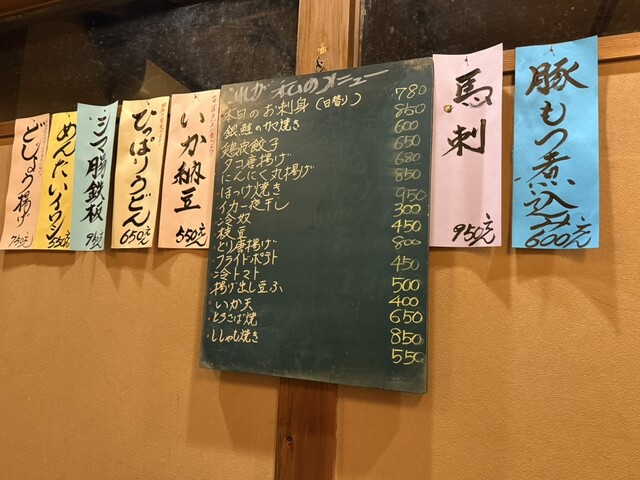 どじょう揚げ
めんたいイワシ
550元
シマ腸鉄板
ひっぱりうどん
650元
いか納豆
550元
メニュー
本日のお刺身(日替り)
780
銀鮭のカマ焼き
850
鶏皮餃子
600
タコ唐揚げ
650
にんにく丸揚げ
680
ほっけ焼き
850
イカ一夜干し
950
冷奴
300
枝豆
450
とり唐揚げ
800
フライドポテト
冷トマト
450
揚げ出し豆ふ
500
いか天
400
とろさば焼
650
ししゃも焼き
850
550
馬刺
950元
豚もつ煮込み
600元